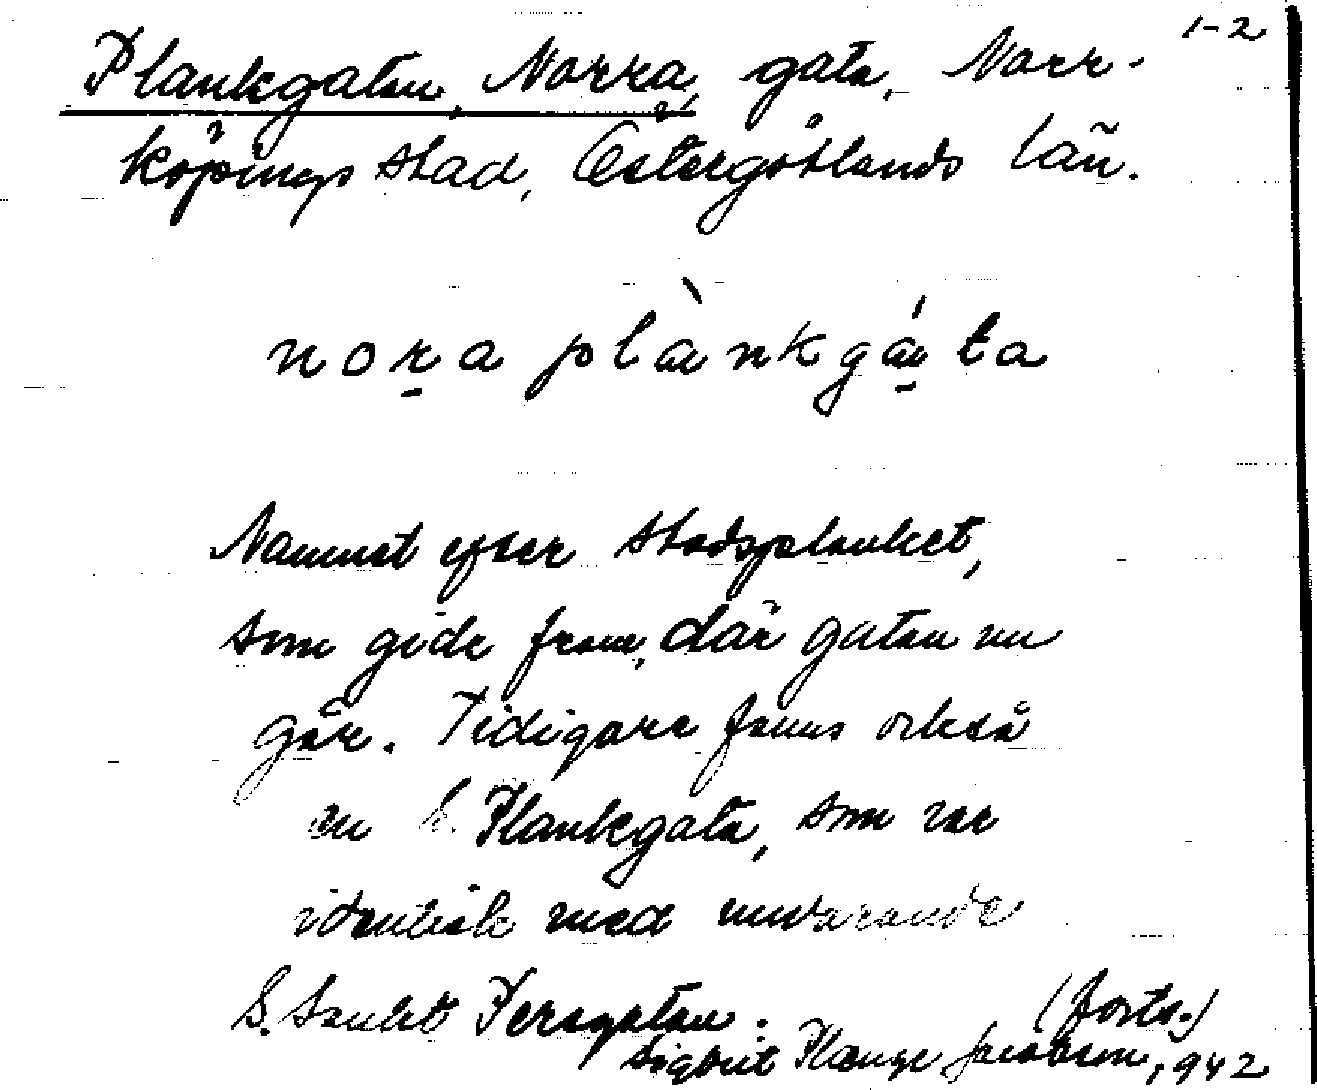 1-2
Plankgatan, Norra, gata, Norr-
köpings stad, Östergötlands län.
nora plànkgáta
Namnet efter stadsplanket,
som gick fram, där gatan nu
går. Tidigare fanns också
en S. Plankgata, som var
identisk med nuvarande
S. Sankt Persgatan.
(forts.)
Sigbrit Plænge Jacobson, 942